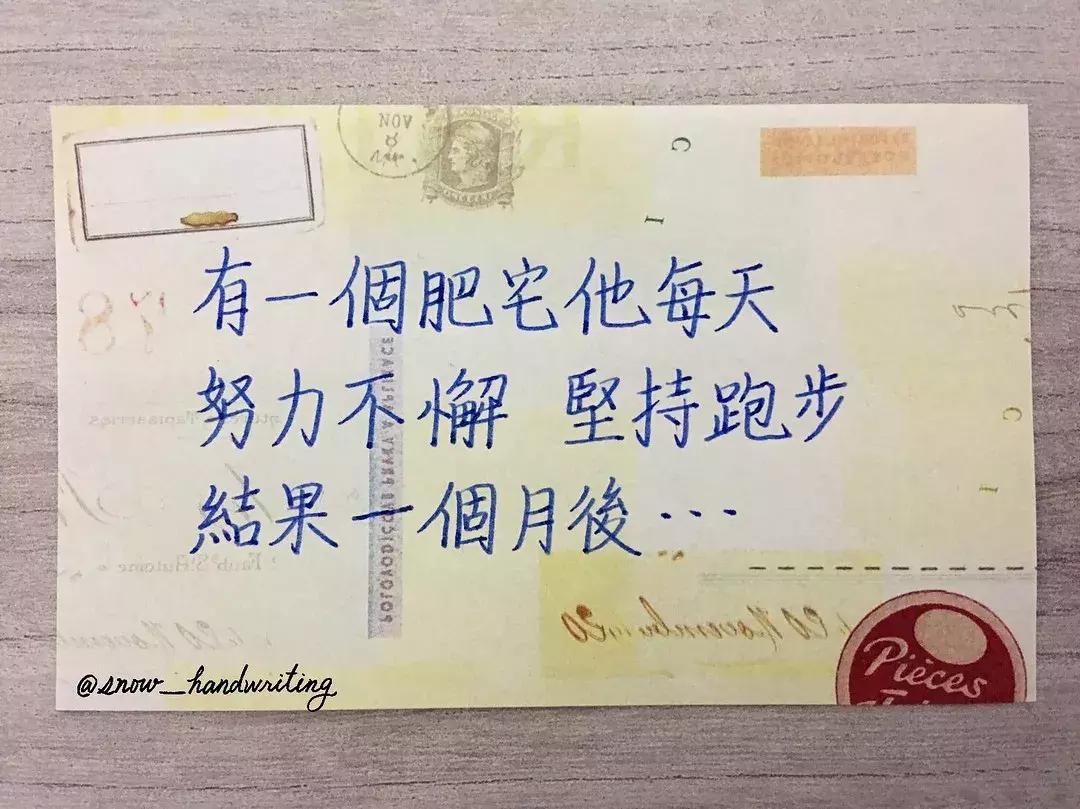 NOV
8
有一個肥宅他每天
努力不懈 堅持跑步
結果一個月後…
@snow_handwriting
Pièces